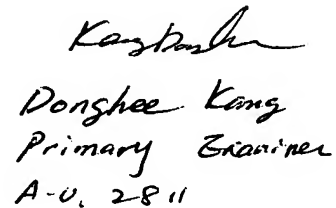 Donghee Kang
Primary Examiner
A-U. 2811